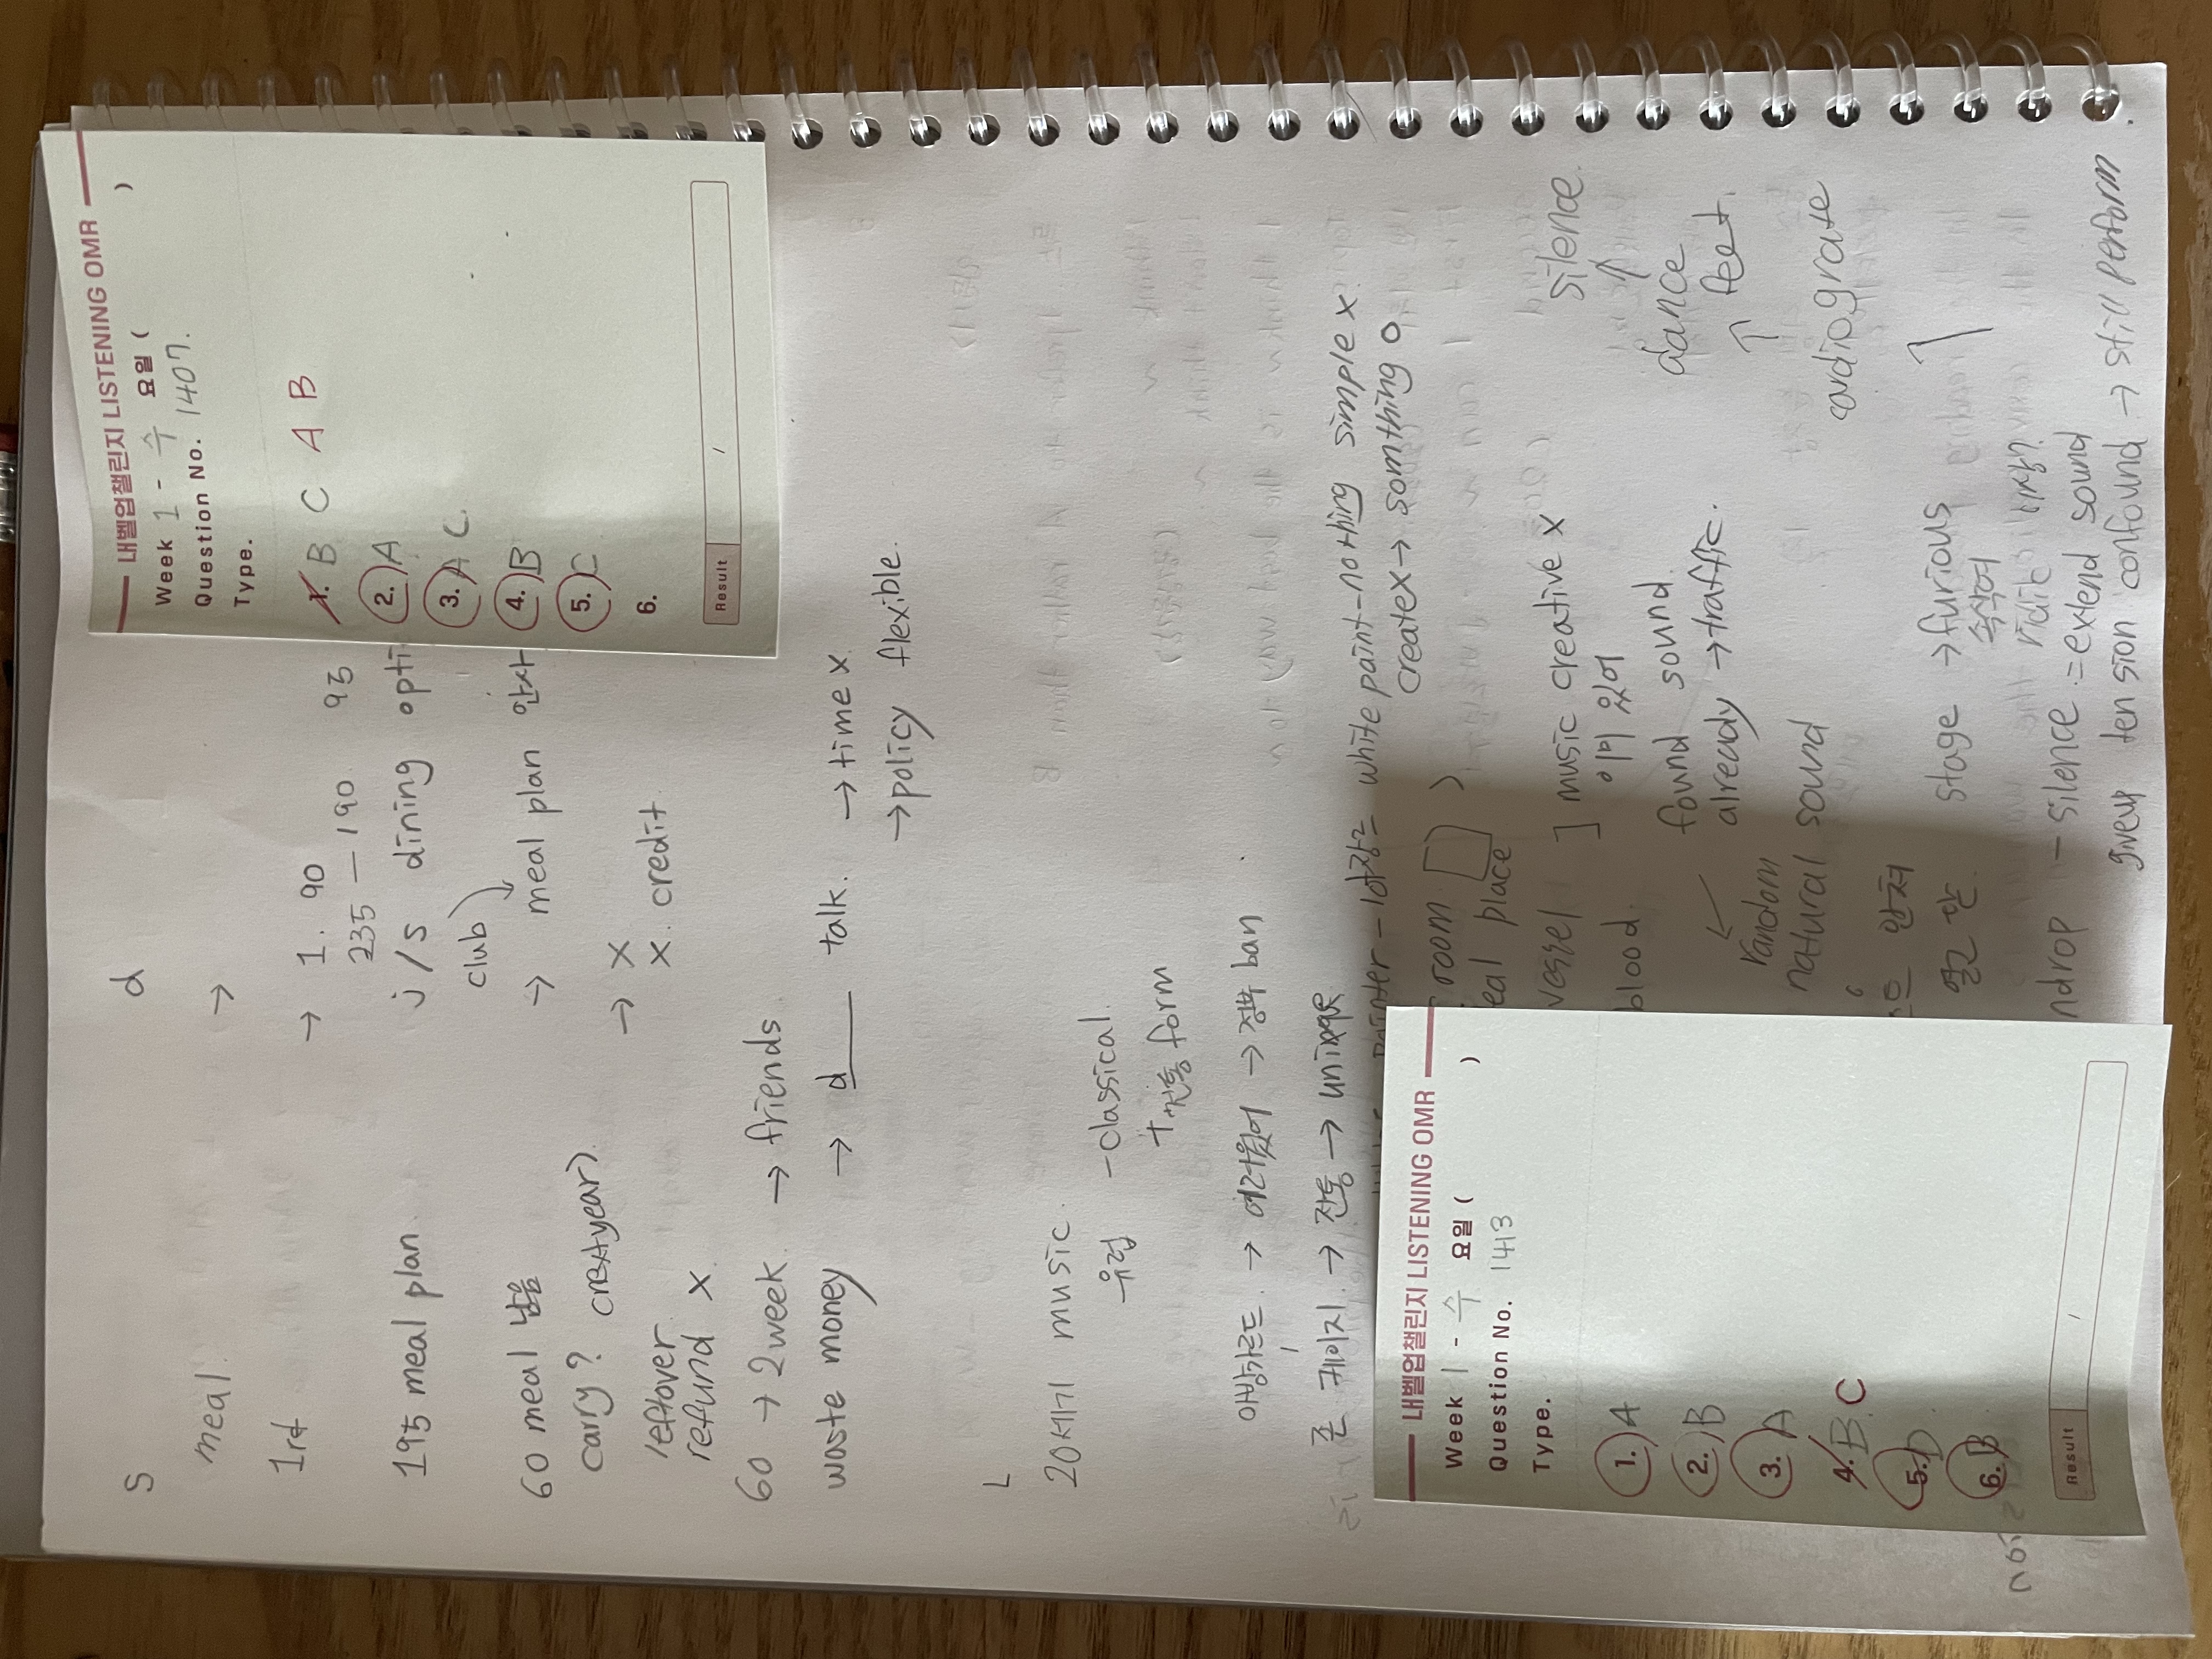 S
d
meal.
→
1rd
→ 1. 90
235 - 190 95
195 meal plan.
j/s dining opti
club
60 meal 남음
→ meal plan 안사
carry? (nextyear).
→ X
X. credit.
leftover
refund X.
60 → 2week. → friends
waste money → d talk. → time X.
→ policy flexible.
L
20세기 music.
유럽 - classical.
+ 전통 form
아방가르드. → 어려웠어 → 정부 ban
존 케이지. → 전통 → unique
Painter - white paint - nothing simple x.
createx → somthing o
room
eal place
vessel ] music creative x
blood. 이미 있어
found sound
already → traffic.
random
natural sound
silence.
↑
dance
↑ feet.
cardiograte
앉쳐
열고 닫
stage → furious
속삭여
ndrop - silence = extend sound
tension confound → still perform
내벨업챌린지 LISTENING OMR
Week 1 - 수 요일 ( )
Question No. 1407.
Type.
1. B C A B
2. A
3. A C.
4. B
5. C
6.
Result /
내벨업챌린지 LISTENING OMR
Week 1 - 수 요일 ( )
Question No. 1413
Type.
1. A
2. B
3. A
4. B. C
5. D
6. B
Result /